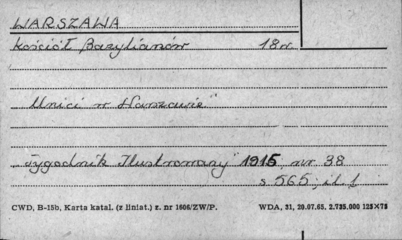 WARSZAWA
Kościół Bazylianów 18 w.
"Unici w Warszawie"
"Tygodnik Ilustrowany" 1915, nr. 38
s. 565; il. 1
CWD, B-15b, Karta katal. (z liniat.) z. nr 1606/ZW/P. WDA, 31, 20.07.65, 2.735.000 125×75